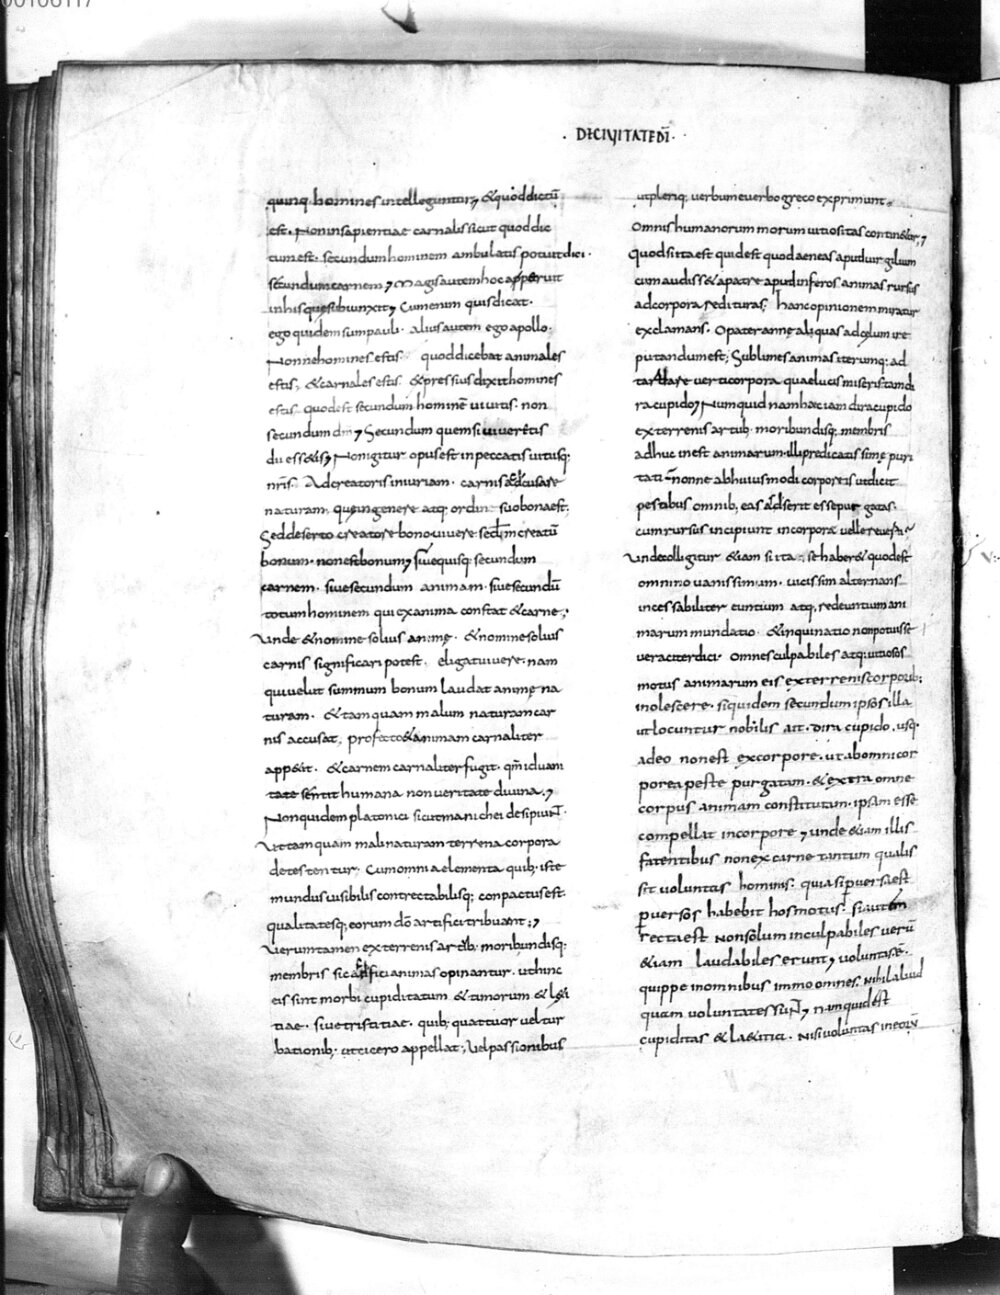 00106117
· DECIVITATEDĪ ·
quinq· homines intelleguntur; & quod dictū
est· Non in sapientiae carnalis sicut quod die
tum est· secundum hominem ambulatis potuit dici·
secundum carnem; Magis autem hoc apperuit
in his quę subiunxit; Cum enim quis dicat·
ego quidem sum pauli· alius autem ego apollo·
Nonne homines estis· quod dicebat animales
estis; & carnales estis· &pressius dixit homines
estis· quod est secundum hominē vivitis· non
secundum dm̄; Secundum quem si viver&is
dii ess&is; Non igitur opus est in peccatis vitiisq;
nr̄is· Ad creatoris iniuriam· carnis accusare
naturam· quę in genere atq; ordine suo bona est;
Sed deserto creatore bono vivere secundum creatū
bonum· non est bonum; sive quisq; secundum
carnem· sive secundum animam· sive secundū
totum hominem qui ex anima constat & carne;
Unde & nomine solius animę· & nomine solius
carnis significari potest· eligat vivere· nam
qui velut summum bonum laudat animę na
turam· & tamquam malum naturam car
nis accusat; profecto & animam carnaliter
app&it· & carnem carnaliter fugit· qm̄ id vani
tate sentit humana non veritate divina·;
Non quidem platonici sicut manichei desipiunt·
Ut tamquam mali naturam terrena corpora
detestentur; Cum omnia elementa quib; iste
mundus visibilis contrectabilisq; conpactus est·
qualitatesq; eorum dō artifici tribuant·;
Verumtamen ex terrenis artib; moribundisq;
membris sic affici animas opinantur· ut hinc
eis sint morbi cupiditatum & timorum & l&i
tiae· sive tristitiae· quib; quattuor vel tur
bationib; ut cicero appellat; vel passionibus
ut pleriq; verbum e verbo greco exprimunt·
Omnis humanorum morum vitiositas contin&ur;
Quod si ita est quid est quod aeneas apud virgilium
cum audiss& a patre apud inferos animas rursus
ad corpora redituras; hanc opinionem miratur
exclamans· O pater anne aliquas ad cęlum ire
putandum est; Sublimes animas iterumq; ad
tarda reverti corpora quae lucis miseris tam di
ra cupido; Numquidnam haec tam dira cupido
ex terrenis artub; moribundisq; membris
adhuc inest animarum· illi predicatissimę puri
tati· nonne ab huiusmodi corporeis ut dicit
pestibus omnib; eas adserit esse purgatas·
cum rursus incipiunt in corpora velle reverti·
Unde colligitur &iam si ita se haber& quod est
omnino vanissimum· vicissim alternans
incessabiliter euntium atq; redeuntium ani
marum mundatio· & inquinatio non potuisse
veraciter dici· omnes culpabiles atq; vitiosos
motus animarum eis ex terrenis corporib;
inolescere· siquidem secundum ipsos illa
ut locuntur nobilis ait· dira cupido· usq;
adeo non est ex corpore· ut ab omni cor
porea peste purgatam· & extra omne
corpus animam constitutam· ipsam esse
compellat in corpore; unde &iam illis
fatentibus non ex carne tantum qualis
sit voluntas hominis· quia si pversa est
pversos habebit hos motus· si autem
recta est non solum inculpabiles verū
&iam laudabiles erunt; voluntas ē
quippe in omnibus immo omnes· nihil aliud
quam voluntates sunt; nam quid est
cupiditas & l&itia· nisi voluntas in eorū